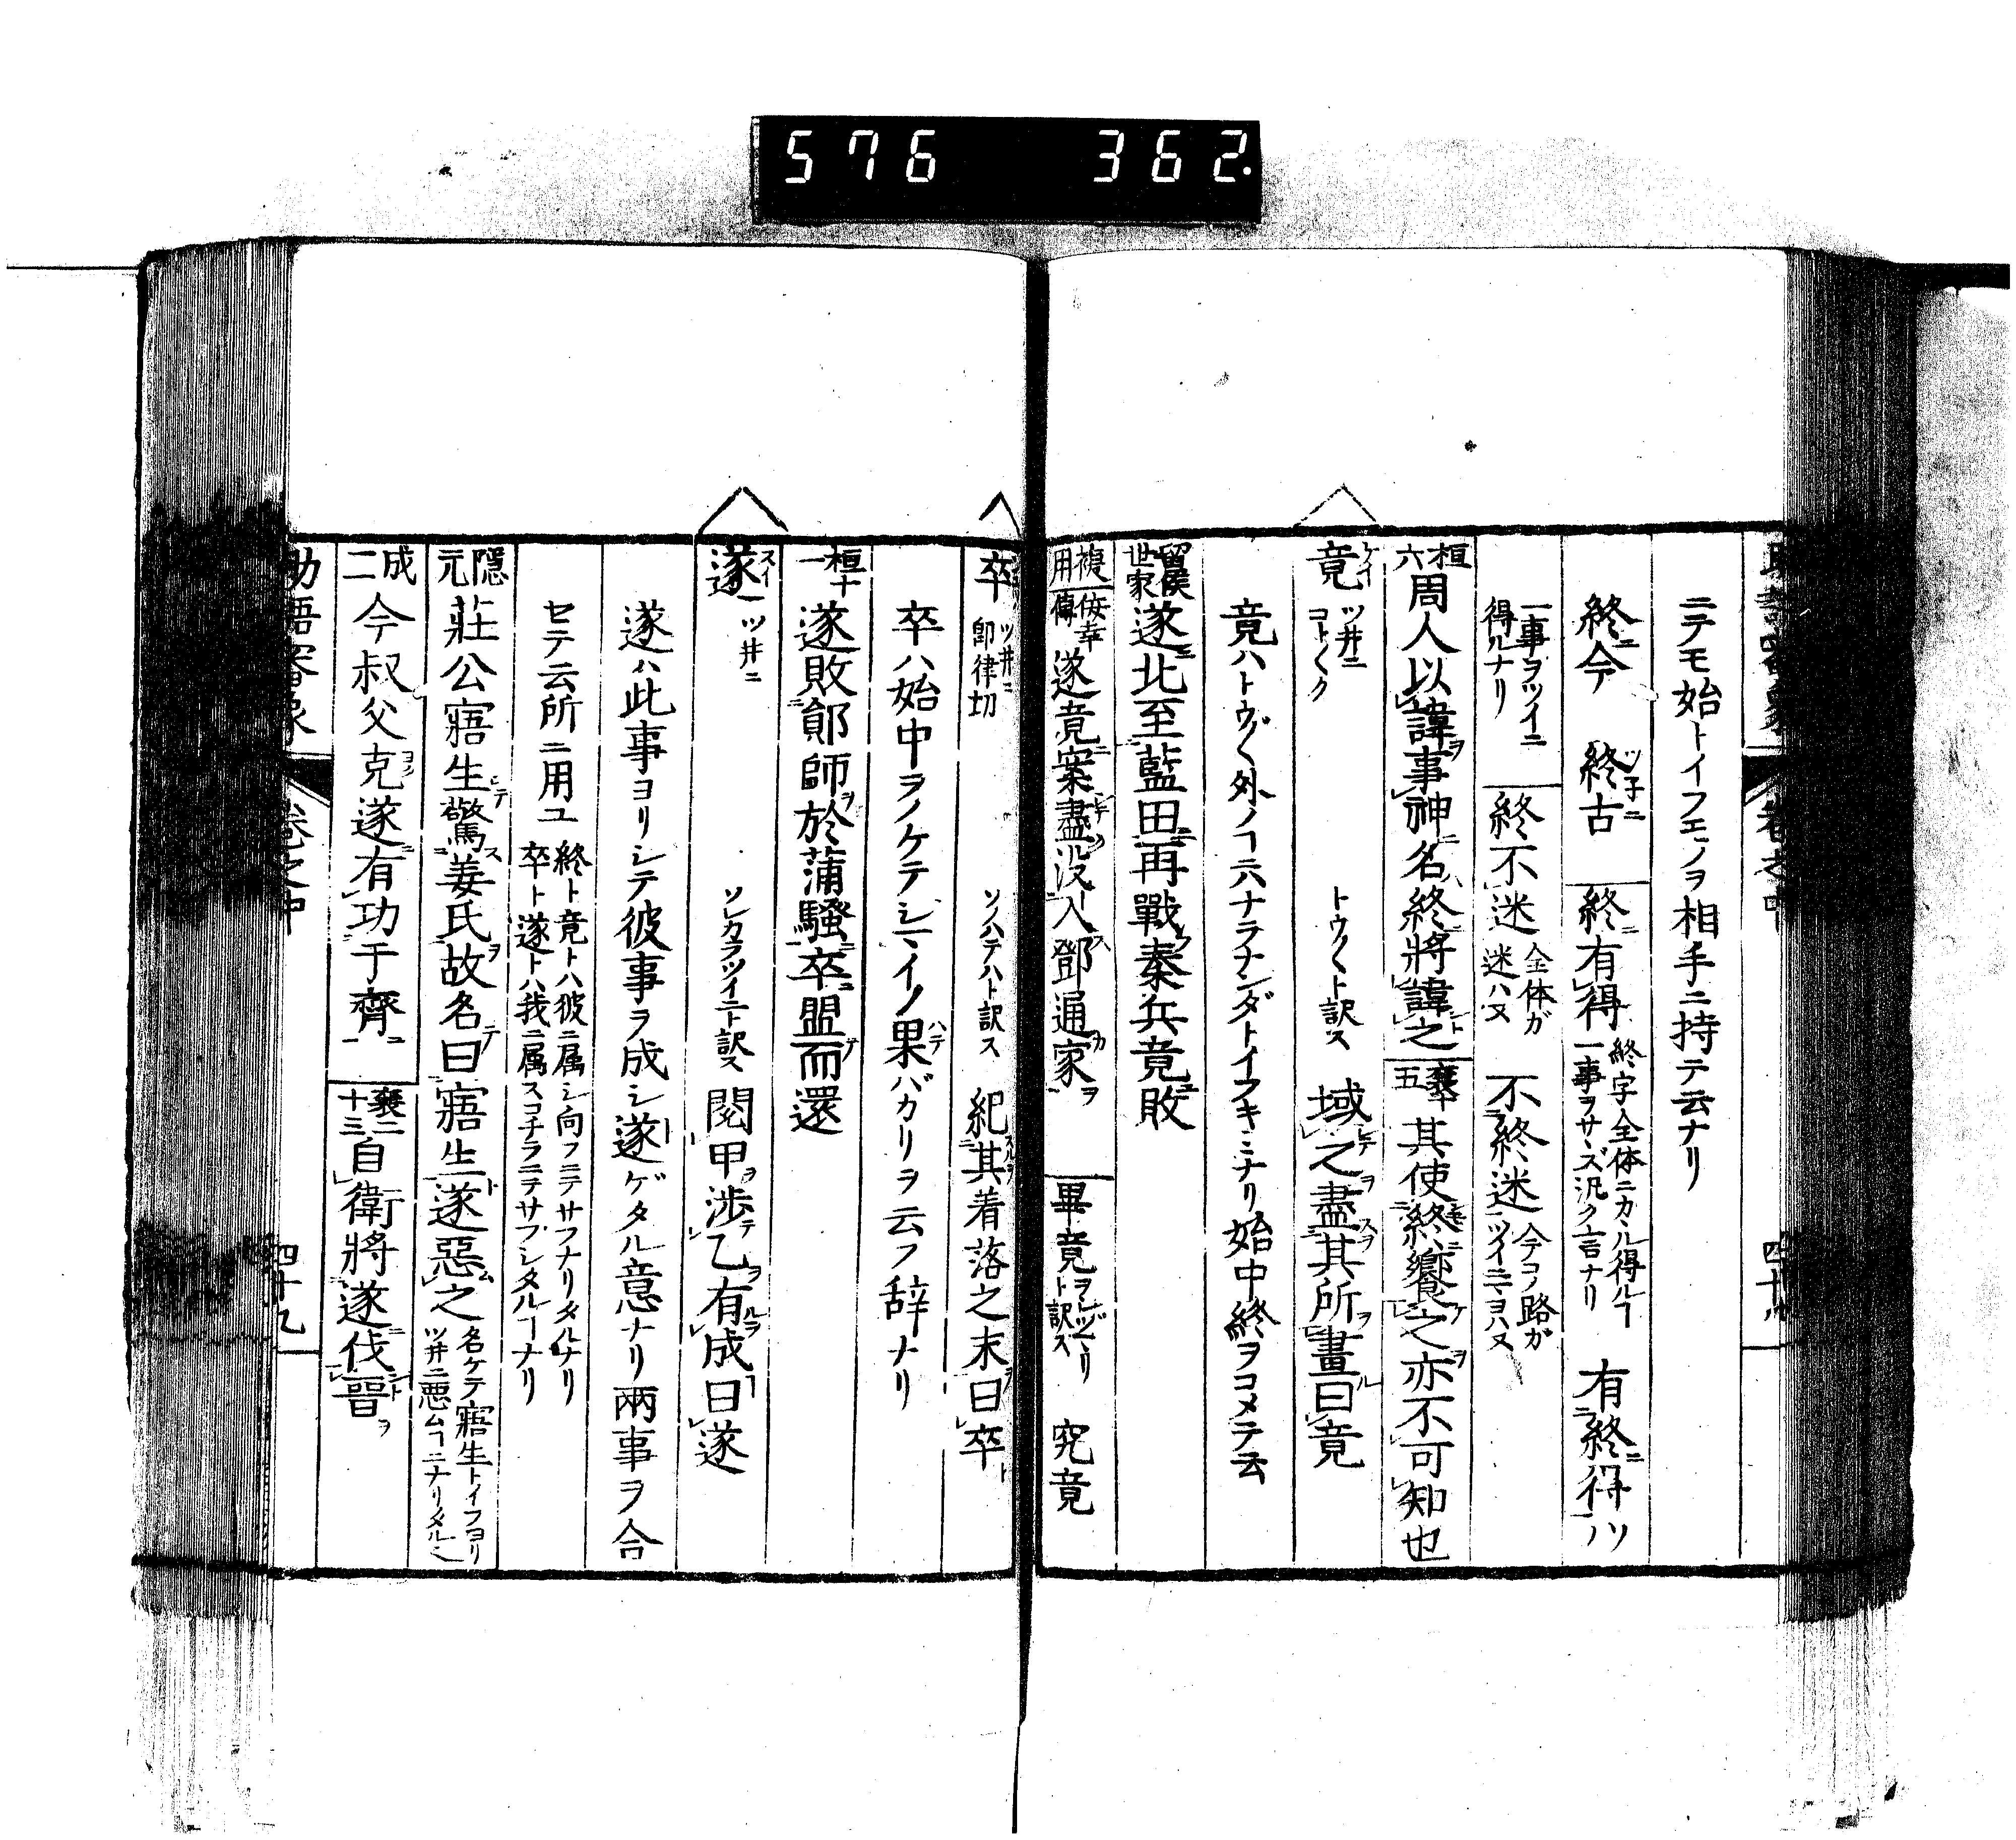 576 362.
ニテモ始トイフモノヲ相手ニ持テ云ナリ
終ニ今 終古ツ子ニ 終ニ有得 終字全体ニカヽル得ルヿ
一事ヲサヽズ汎ク言ナリ 有終ニ得
一事ヲツイニ
得ルナリ 終不迷 全体ガ
迷ハヌ 不終迷 今コノ路ガ
桓六 周人以諱事神名終將諱之 襄 五 其使終饗之亦不可知也
竟ケイ ツ井ニ
コト〱ク トウ〱ト訳ス 域之盡其所畫曰竟
竟ハトウ〱外ノヿニハナラナンダトイフキミナリ始中終ヲコメテ云
留侯世家 遂北至藍田再戰秦兵竟敗
複用 佞幸傳 遂竟案盡没入鄧通家 畢竟 ヲシツマリ
ト訳ス 究竟
卒 ツ井ニ
即律切 ソノハテハト訳ス 紀其着落之末曰卒
卒ハ始中ヲノケテシマイノ果バカリヲ云フ辞ナリ
桓十一 遂敗鄖師於蒲騒卒盟而還
遂スイ ツ井ニ ソレカラツイニト訳ス 閲甲渉乙有成曰遂
遂ハ此事ヨリシテ彼事ヲ成シ遂ゲタル意ナリ兩事ヲ合
セテ云所ニ用ユ 終ト竟トハ彼ニ属シ向フニテサフナリタルナリ
卒ト遂トハ我ニ属スコチラニテサフシタルヿナリ
隱元 莊公寤生驚姜氏故名曰寤生遂惡之 名ケテ寤生トイフヨリ
ツ井ニ悪ムヿニナリタル
成二 今叔父克遂有功于齊 襄二十三 自衛將遂伐晉
助語審象 卷之中 四十九